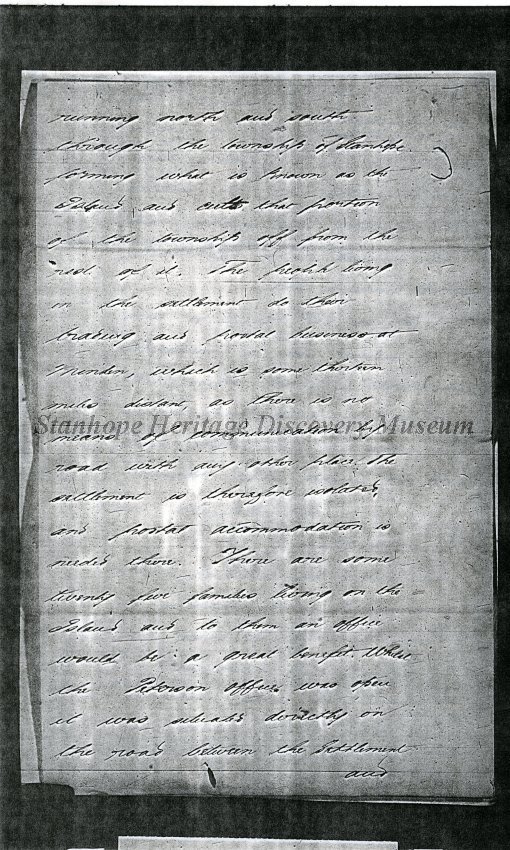 running north and south
through the township of Stanhope
forming what is known as the
Island and cuts that portion
of the township off from the
rest of it. The people living
in the settlement do their
trading and postal business at
Minden, which is some thirteen
miles distant, as there is no
Stanhope Heritage Discovery Museum
means of communication by
road with any other place. The
settlement is therefore isolated,
and postal accommodation is
needed there. There are some
twenty five families living on the
Island and to them an office
would be a great benefit. When
the Peterson office was open
it was situated directly on
the road between the settlement
and